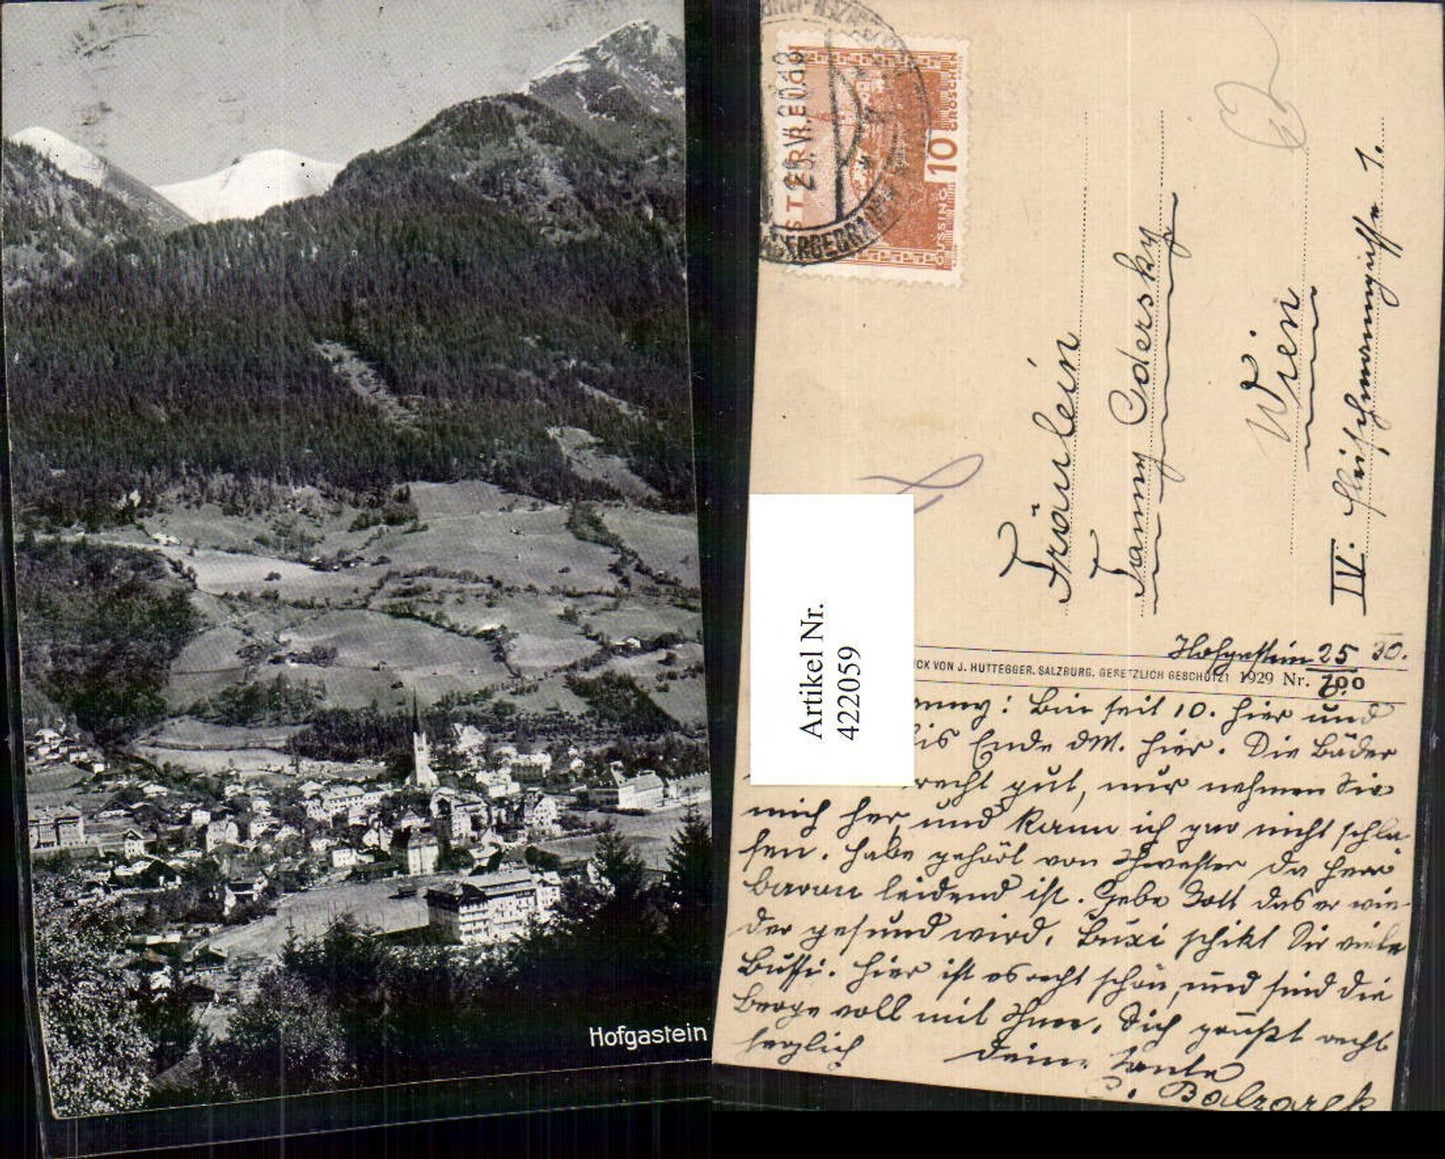 Hofgastein
ÖSTERREICH
25.VI.30.18
10
GROSCHEN
GÜSSING
Fräulein
Fanny Odersky
Wien
IV. Fleischmanngasse 1.
Artikel Nr.
422059
CK VON J. HUTTEGGER, SALZBURG. GESETZLICH GESCHÜTZT 1929 Nr. 700
Hofgastein 25 30.
nny: Bin seit 10. hier und
bis Ende dM. hier. Die Bäder
recht gut, nur nehmen Sie
mich her, und kann ich gar nicht schla-
fen. Habe gehört von Schwester da Herr
Baron leidend ist. Gebe Gott das er wie-
der gesund wird. Buxi schikt Dir viele
Bussi. Hier ist es recht schön, und sind die
Berge voll mit Schnee. Dich grüßt recht
herzlich Deine Tante
Balzarek